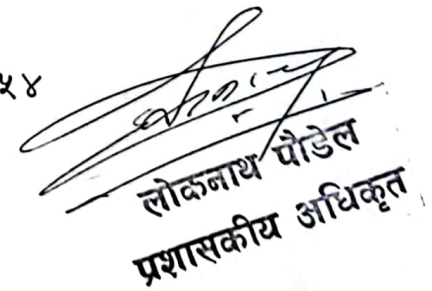 ५४
लोकनाथ पौडेल
प्रशासकीय अधिकृत